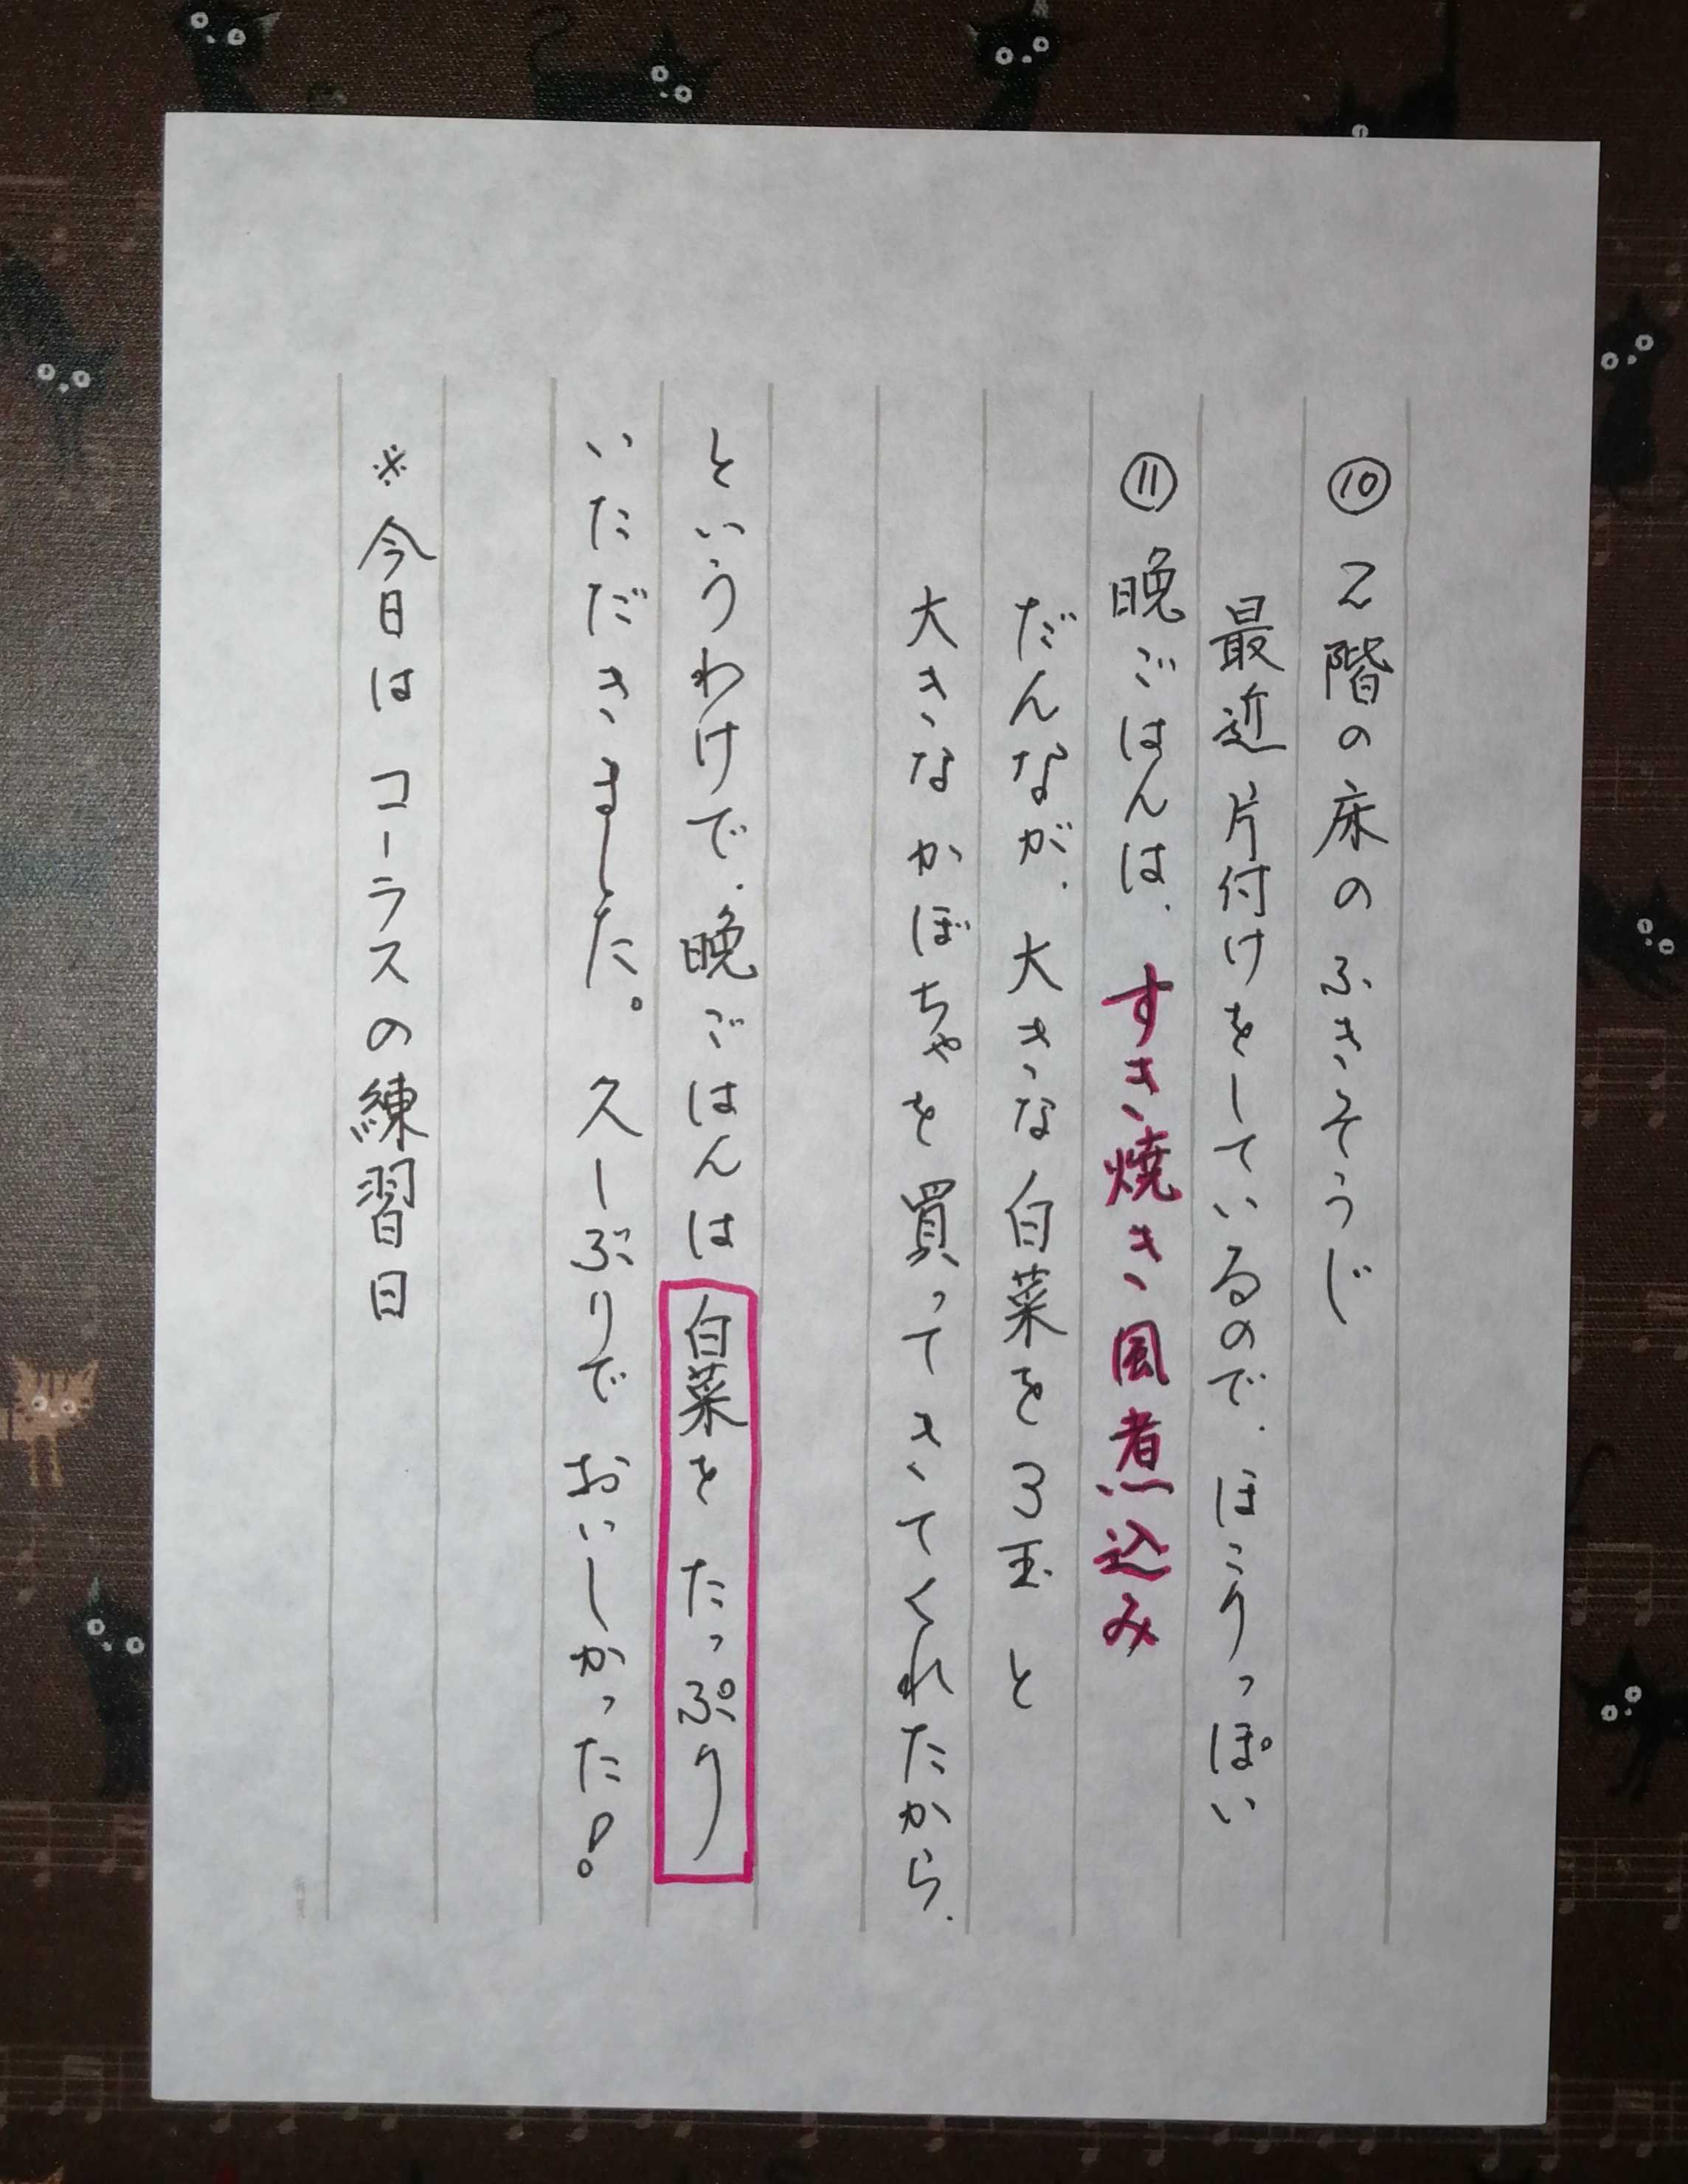 ⑩ 2階の床のふきそうじ
最近片付けをしているので、ほこりっぽい
⑪ 晩ごはんは、すき焼き風煮込み
だんなが、大きな白菜を3玉と
大きなかぼちゃを買ってきてくれたから、
というわけで、晩ごはんは白菜をたっぷり
いただきました。スーぷりで おいしかった!
※今日は コーラスの練習日